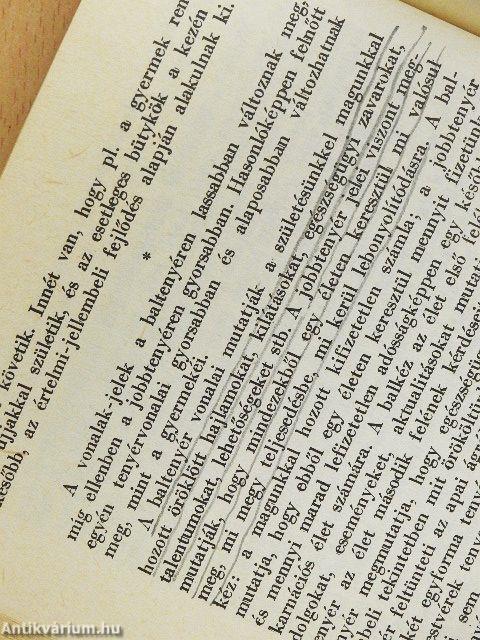 követik. Innét van, hogy pl. a gyermek
ujjakkal születik, és az esetleges bütykök a kezén
később, az értelmi-jellembeli fejlődés alapján alakulnak ki.
*
A vonalak-jelek a baltenyéren lassabban változnak meg,
míg ellenben a jobbtenyéren gyorsabban. Hasonlóképpen felnőtt
egyén tenyérvonalai gyorsabban és alaposabban változhatnak
meg, mint a gyermekéi.
A baltenyér vonalai mutatják a születésünkkel magunkkal
hozott öröklött hajlamokat, kilátásokat, egészségügyi zavarokat,
talentumokat, lehetőségeket stb. A jobbtenyér jelei viszont meg-
mutatják, hogy mindezekből egy életen keresztül mi valósul
meg, mi megy teljesedésbe, mi kerül lebonyolítódásra. A bal-
kéz: a magunkkal hozott kifizetetlen számla; a jobbtenyér
mutatja, hogy ebből egy életen keresztül mennyit fizetünk
és mennyi marad lefizetetlen adósságképpen egy
karnációs élet számára. A balkéz az élet első
dolgokat, eseményeket, aktualitásokat
az élet második felének
megmutatja, hogy
tekintetben mit
feltünteti az apai
egyforma
sem
Antikvárium.hu